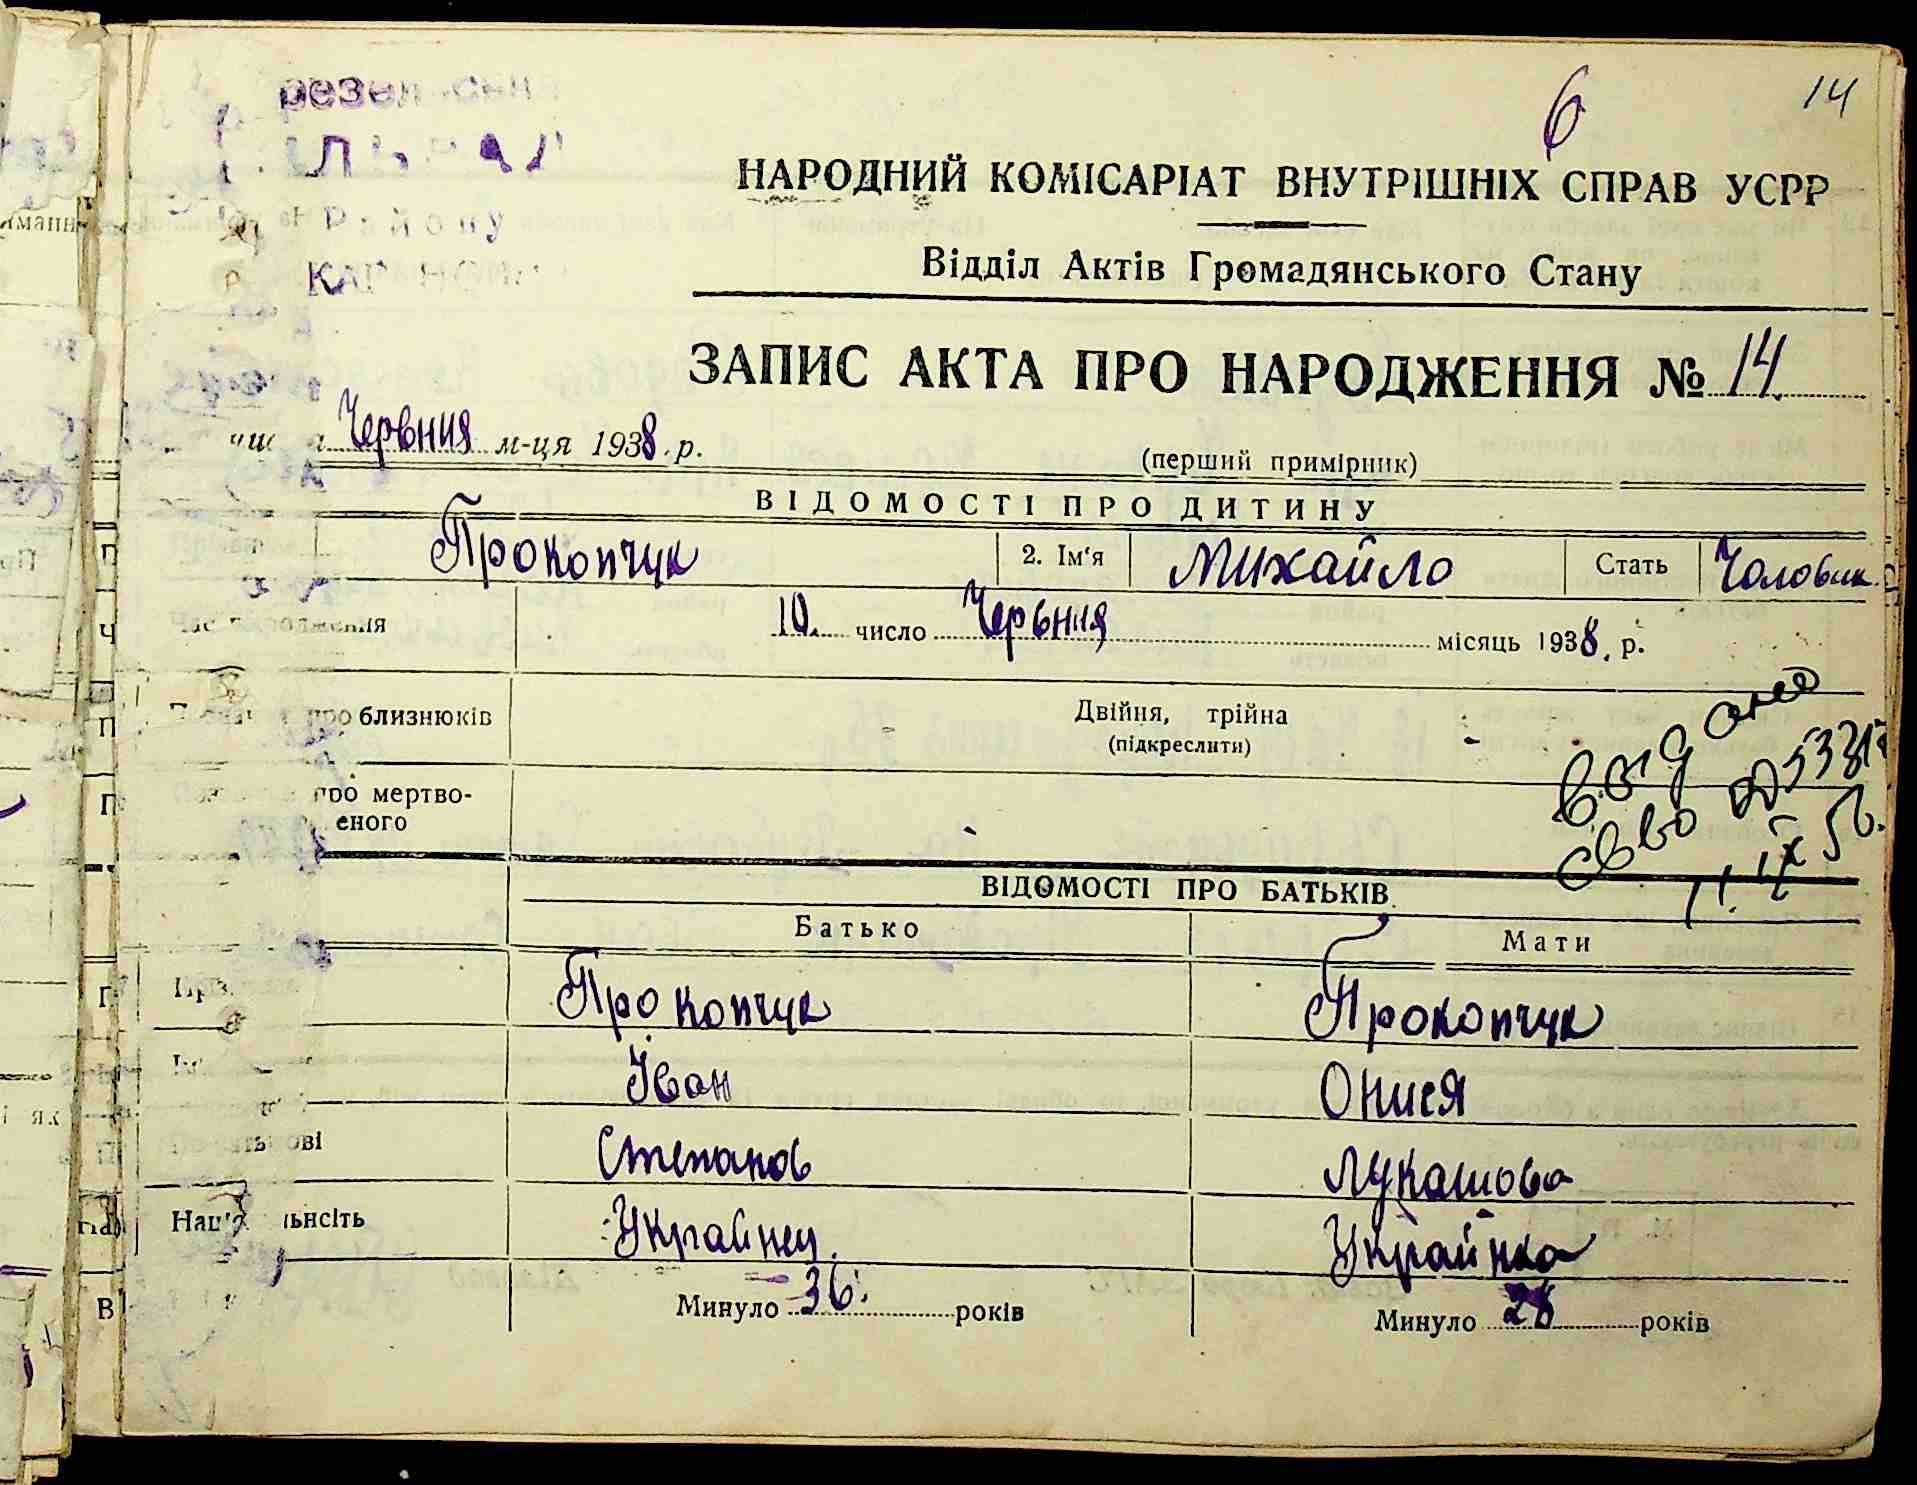 6
14
Району
НАРОДНИЙ КОМІСАРІАТ ВНУТРІШНІХ СПРАВ УСРР
Відділ Актів Громадянського Стану
ЗАПИС АКТА ПРО НАРОДЖЕННЯ № 14
Червня м-ця 1938 р.
(перший примірник)
ВІДОМОСТІ ПРО ДИТИНУ
Прокопчук 2. Ім'я Михайло Стать Чоловік.
Час народження 10 число Червня місяць 1938. р.
про близнюків Двійня, трійна
(підкреслити)
про мертво-
еного
видано
1. IX 56.
ВІДОМОСТІ ПРО БАТЬКІВ
Батько Мати
Прокопчук Прокопчук
Іван Онися
Степанов Лукашова
Українец. Українка
Минуло 36. років Минуло 28 років